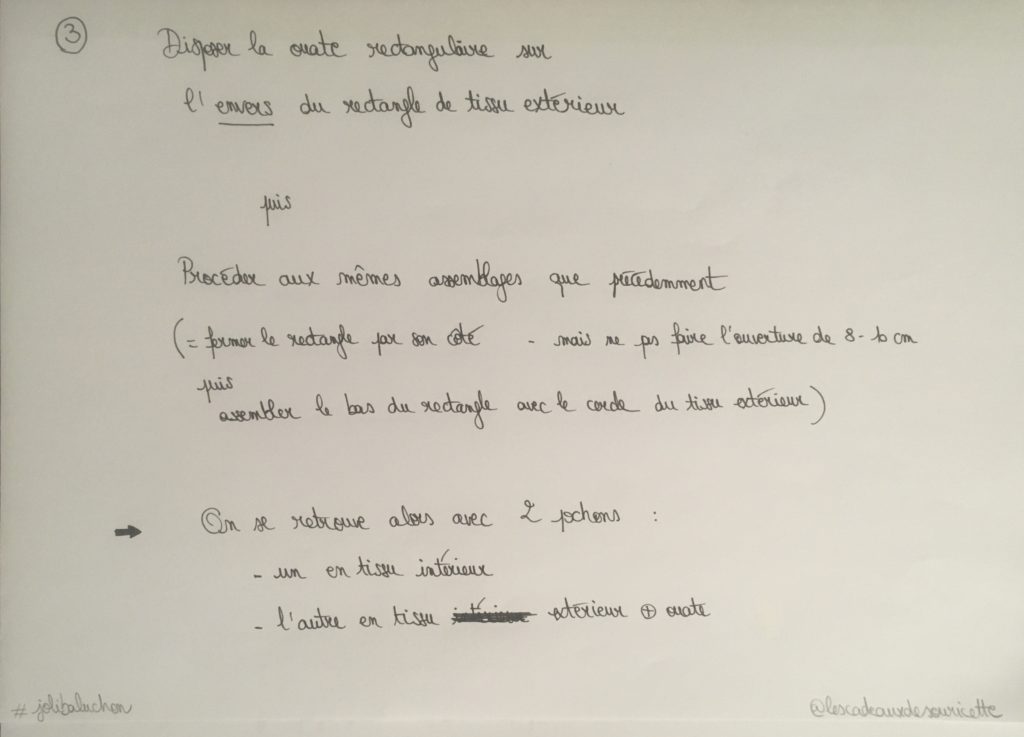 ③
Disposer la ouate rectangulaire sur
l'envers du rectangle de tissu extérieur
puis
Procéder aux mêmes assemblages que précedemment
(= fermer le rectangle par son côté - mais ne pas faire l'ouverture de 8-10 cm
puis
assembler le bas du rectangle avec le cercle du tissu extérieur)
➡ On se retrouve alors avec 2 pochons :
- un en tissu intérieur
- l'autre en tissu extérieur ⊕ ouate
#jolibaluchon
@lescadeauxdesouricette